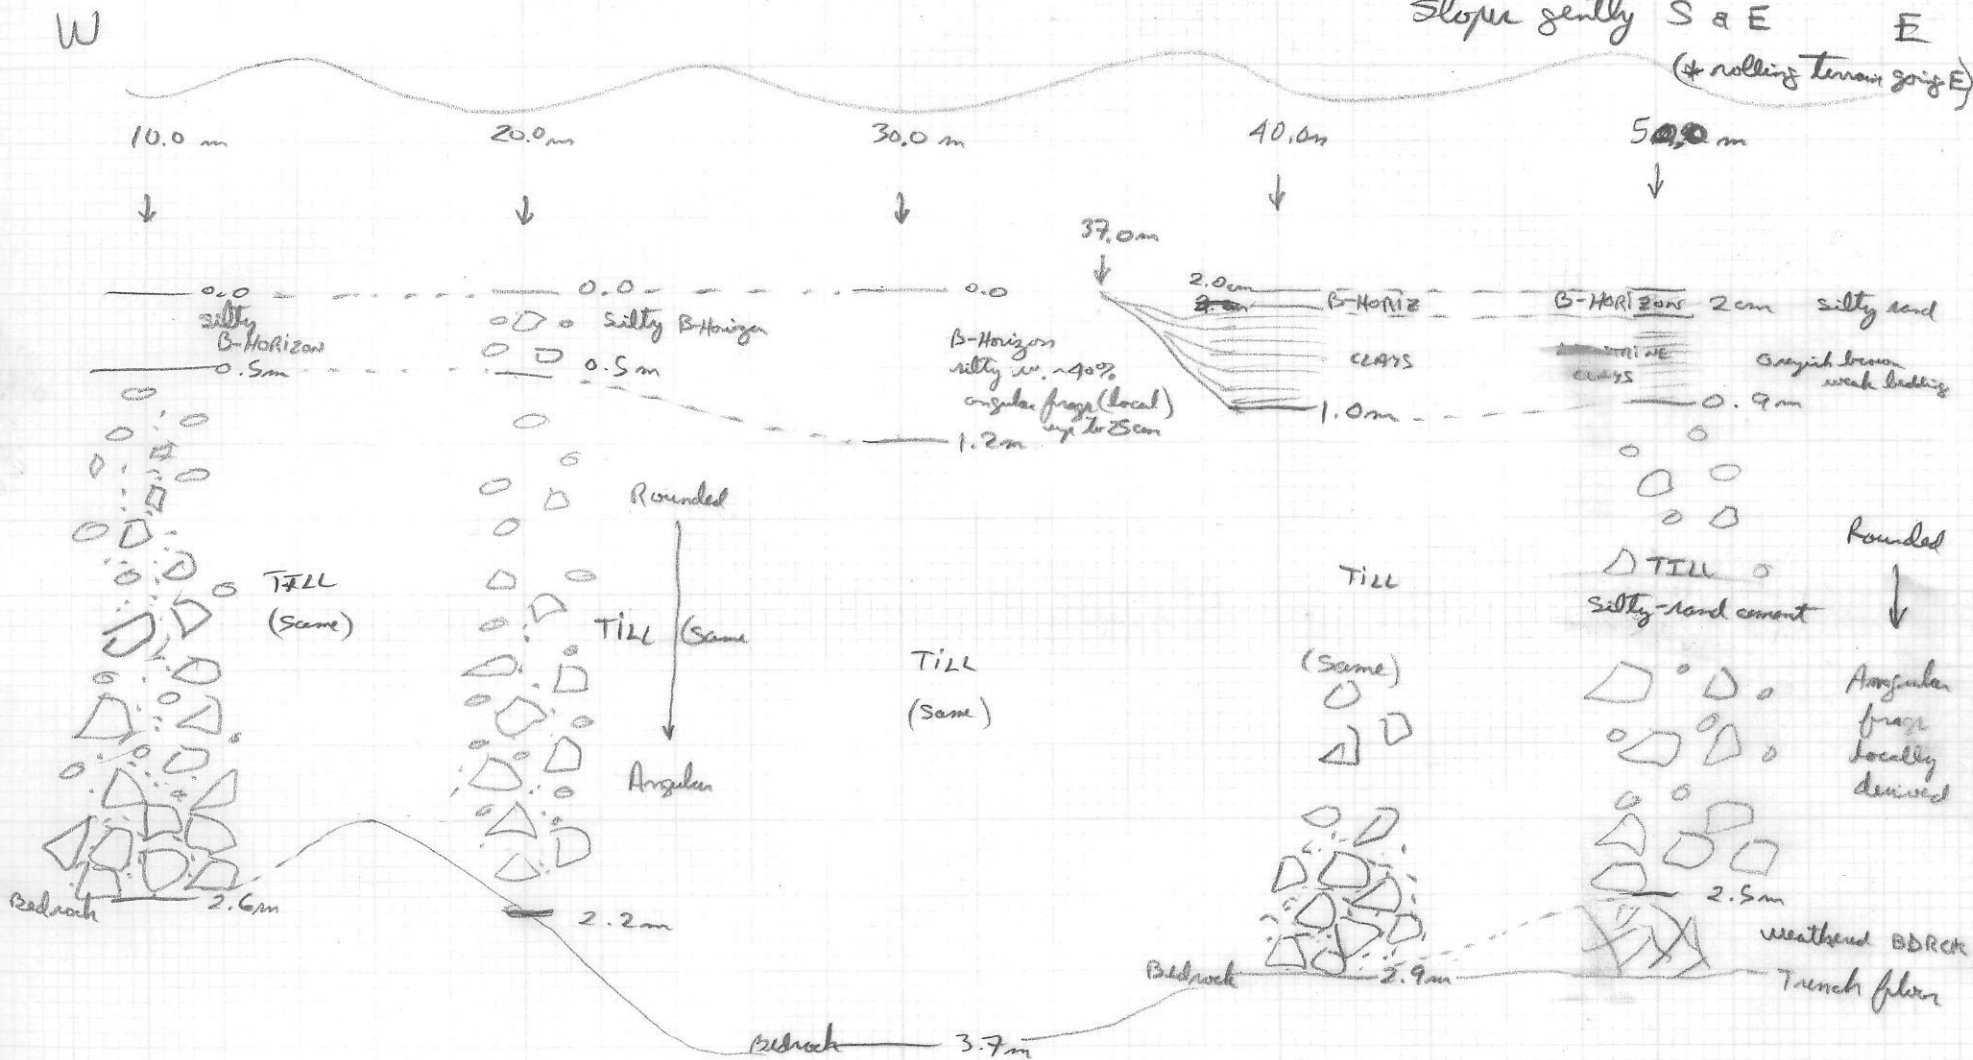 W
Slopes gently S & E
E
(* rolling terrain going E)
10.0 m
20.0 m
30.0 m
40.0m
50.0 m
37.0m
0.0
silty
B-HORIZON
0.5m
0.0
Silty B-Horizon
0.5m
0.0
B-Horizon
silty w. ~40%
angular frags (local)
up to 25cm
1.2m
2.0cm
B-HORIZ
CLAYS
1.0m
B-HORIZON 2cm silty sand
CLAYS
Greyish brown
weak bedding
0.9m
TILL
(Same)
Rounded
TILL (Same
Angular
TILL
(Same)
TILL
(Same)
TILL
Silty-sand cement
Rounded
Angular
frags
locally
derived
Bedrock
2.6m
2.2m
Bedrock
3.7m
Bedrock
2.9m
2.5m
weathered BDRCK
Trench floor